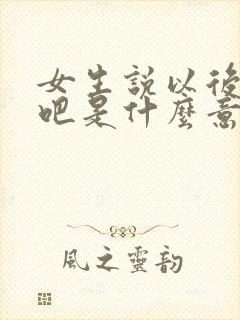 女生説以後
吧是什麼意
風之靈韵